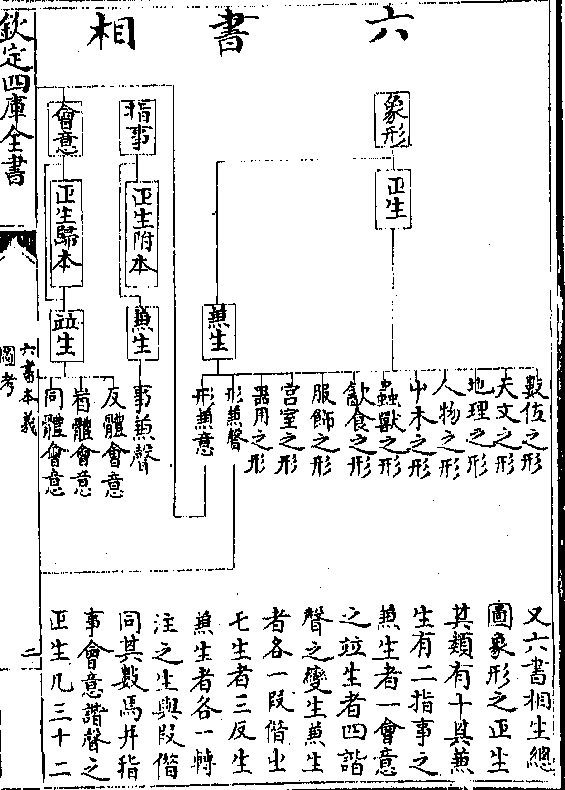 六書相
象形
正生
兼生
數位之形
天文之形
地理之形
人物之形
艸木之形
蟲獸之形
飲食之形
服飾之形
宮室之形
器用之形
形兼聲
形兼意
指事
正生附本
兼生
事兼聲
會意
正生歸本
竝生
反體會意
省體會意
同體會意
又六書相生總
圖象形之正生
其類有十其兼
生有二指事之
兼生者一會意
之竝生者四諧
聲之變生兼生
者各一叚借㞢
七生者三反生
兼生者各一轉
注之生與叚借
同其數焉幷指
事會意諧聲之
正生凡三十二
欽定四庫全書
六書本義
圖考
二